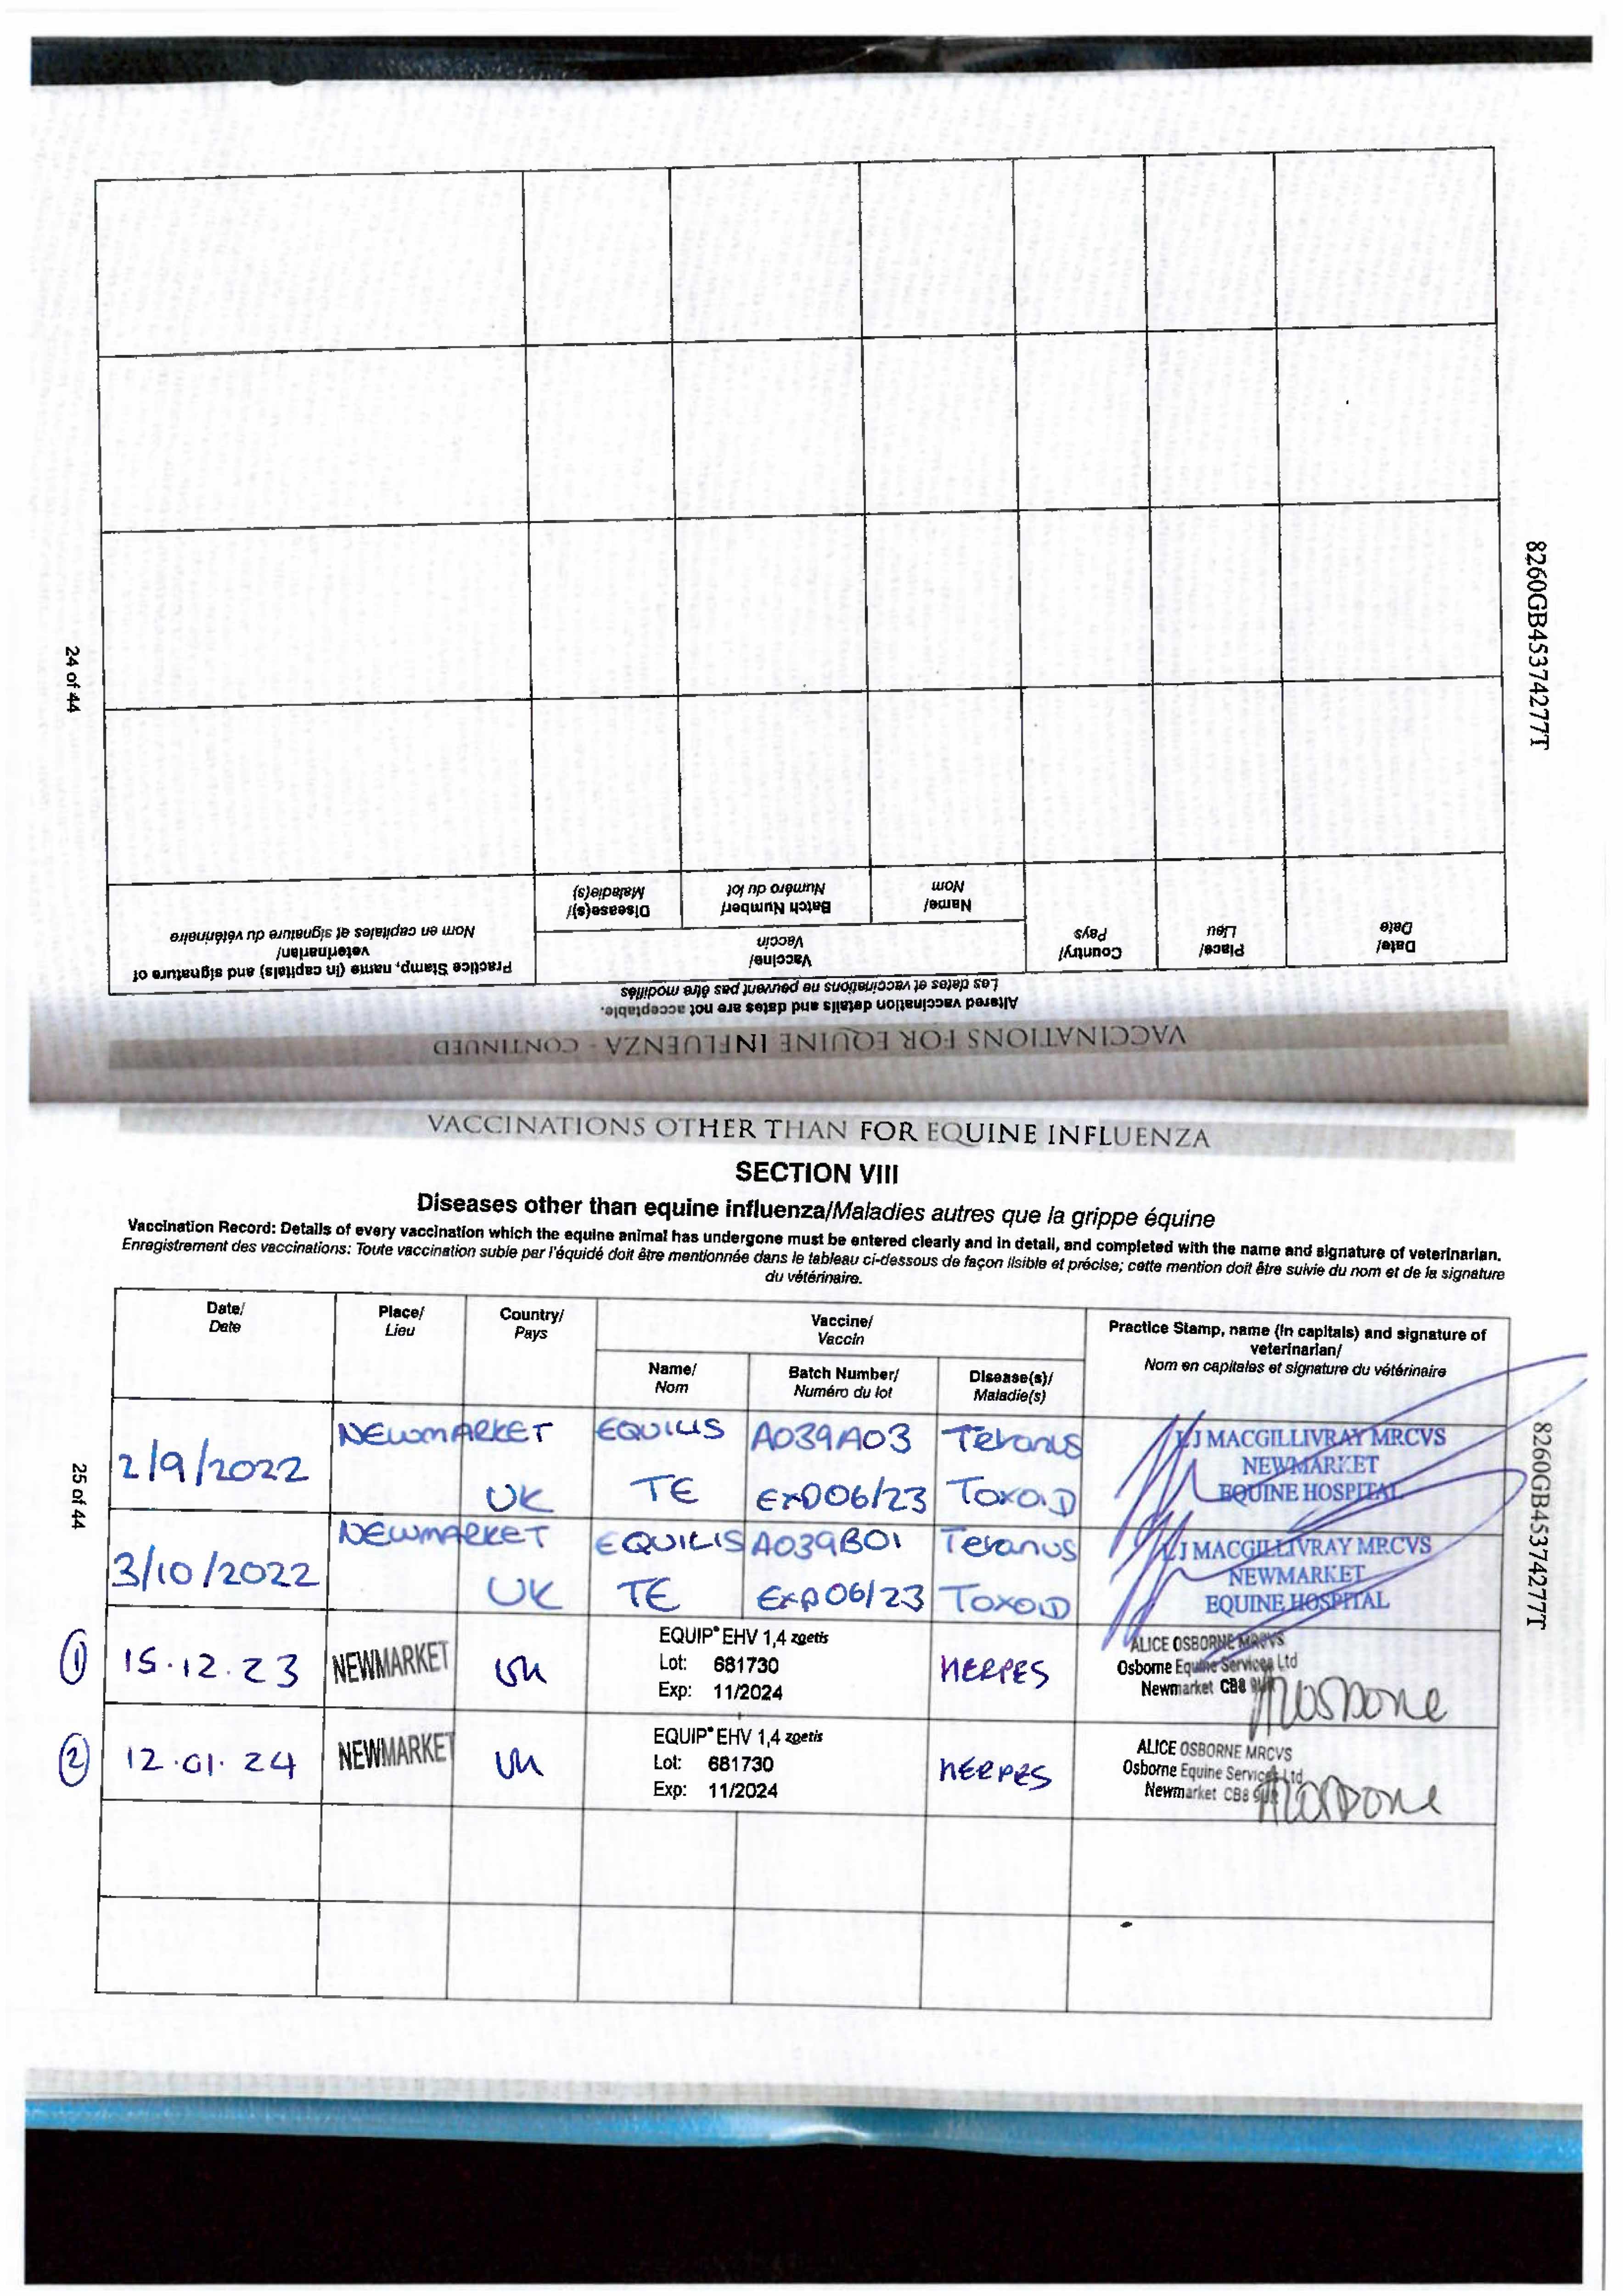 24 of 44
8260GB45374277T
VACCINATIONS FOR EQUINE INFLUENZA - CONTINUED
Altered vaccination details and dates are not acceptable.
Les dates et vaccinations ne peuvent pas être modifiés
Date/
Date
Place/
Lieu
Country/
Pays
Vaccine/
Vaccin
Name/
Nom
Batch Number/
Numéro du lot
Disease(s)/
Maladie(s)
Practice Stamp, name (in capitals) and signature of
veterinarian/
Nom en capitales et signature du vétérinaire
VACCINATIONS OTHER THAN FOR EQUINE INFLUENZA
SECTION VIII
Diseases other than equine influenza/Maladies autres que la grippe équine
Vaccination Record: Details of every vaccination which the equine animal has undergone must be entered clearly and in detail, and completed with the name and signature of veterinarian.
Enregistrement des vaccinations: Toute vaccination subie par l'équidé doit être mentionnée dans le tableau ci-dessous de façon lisible et précise; cette mention doit être suivie du nom et de la signature
du vétérinaire.
Date/
Date
Place/
Lieu
Country/
Pays
Vaccine/
Vaccin
Name/
Nom
Batch Number/
Numéro du lot
Disease(s)/
Maladie(s)
Practice Stamp, name (in capitals) and signature of
veterinarian/
Nom en capitales et signature du vétérinaire
2/9/2022
NEWMARKET
UK
EQUILIS
TE
A039A03
EXP06/23
Tetanus
TOXOID
J MACGILLIVRAY MRCVS
NEWMARKET
EQUINE HOSPITAL
3/10/2022
NEWMARKET
UK
EQUILIS
TE
A039B01
EXP06/23
Tetanus
TOXOID
J MACGILLIVRAY MRCVS
NEWMARKET
EQUINE HOSPITAL
1 15.12.23
NEWMARKET
UK
EQUIP® EHV 1,4 zoetis
Lot: 681730
Exp: 11/2024
HERPES
ALICE OSBORNE MRCVS
Osborne Equine Services Ltd
Newmarket CB8
2 12.01.24
NEWMARKET
UK
EQUIP® EHV 1,4 zoetis
Lot: 681730
Exp: 11/2024
HERPES
ALICE OSBORNE MRCVS
Osborne Equine Services Ltd
Newmarket CB8
25 of 44
8260GB45374277T